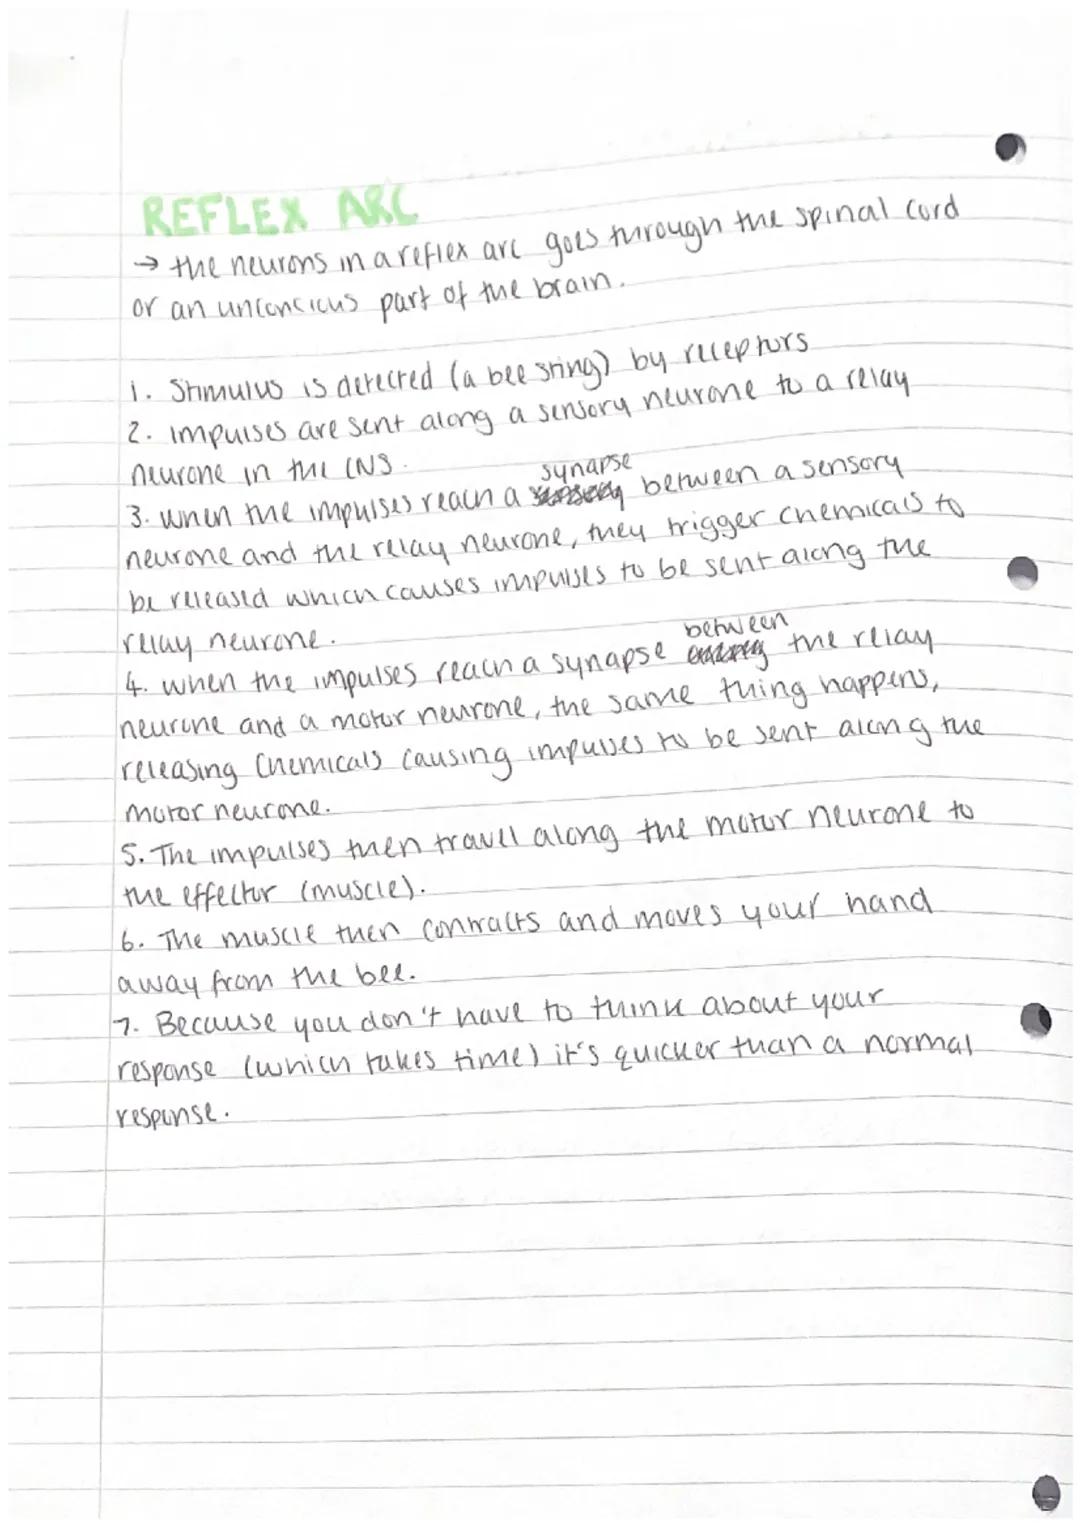 REFLEX ARC
→ the neurons in a reflex arc goes through the spinal cord
or an unconcious part of the brain.
1. Stimulus is detected (a bee sting) by receptors
2. impulses are sent along a sensory neurone to a relay
neurone in the CNS.
3. when the impulses reach a synapse between a sensory
neurone and the relay neurone, they trigger chemicals to
be released which causes impulses to be sent along the
relay neurone.
4. when the impulses reach a synapse between the relay
neurone and a motor neurone, the same thing happens,
releasing chemicals causing impulses to be sent along the
motor neurone.
5. The impulses then travel along the motor neurone to
the effector (muscle).
6. The muscle then contracts and moves your hand
away from the bee.
7. Because you don't have to think about your
response (which takes time) it's quicker than a normal
response.